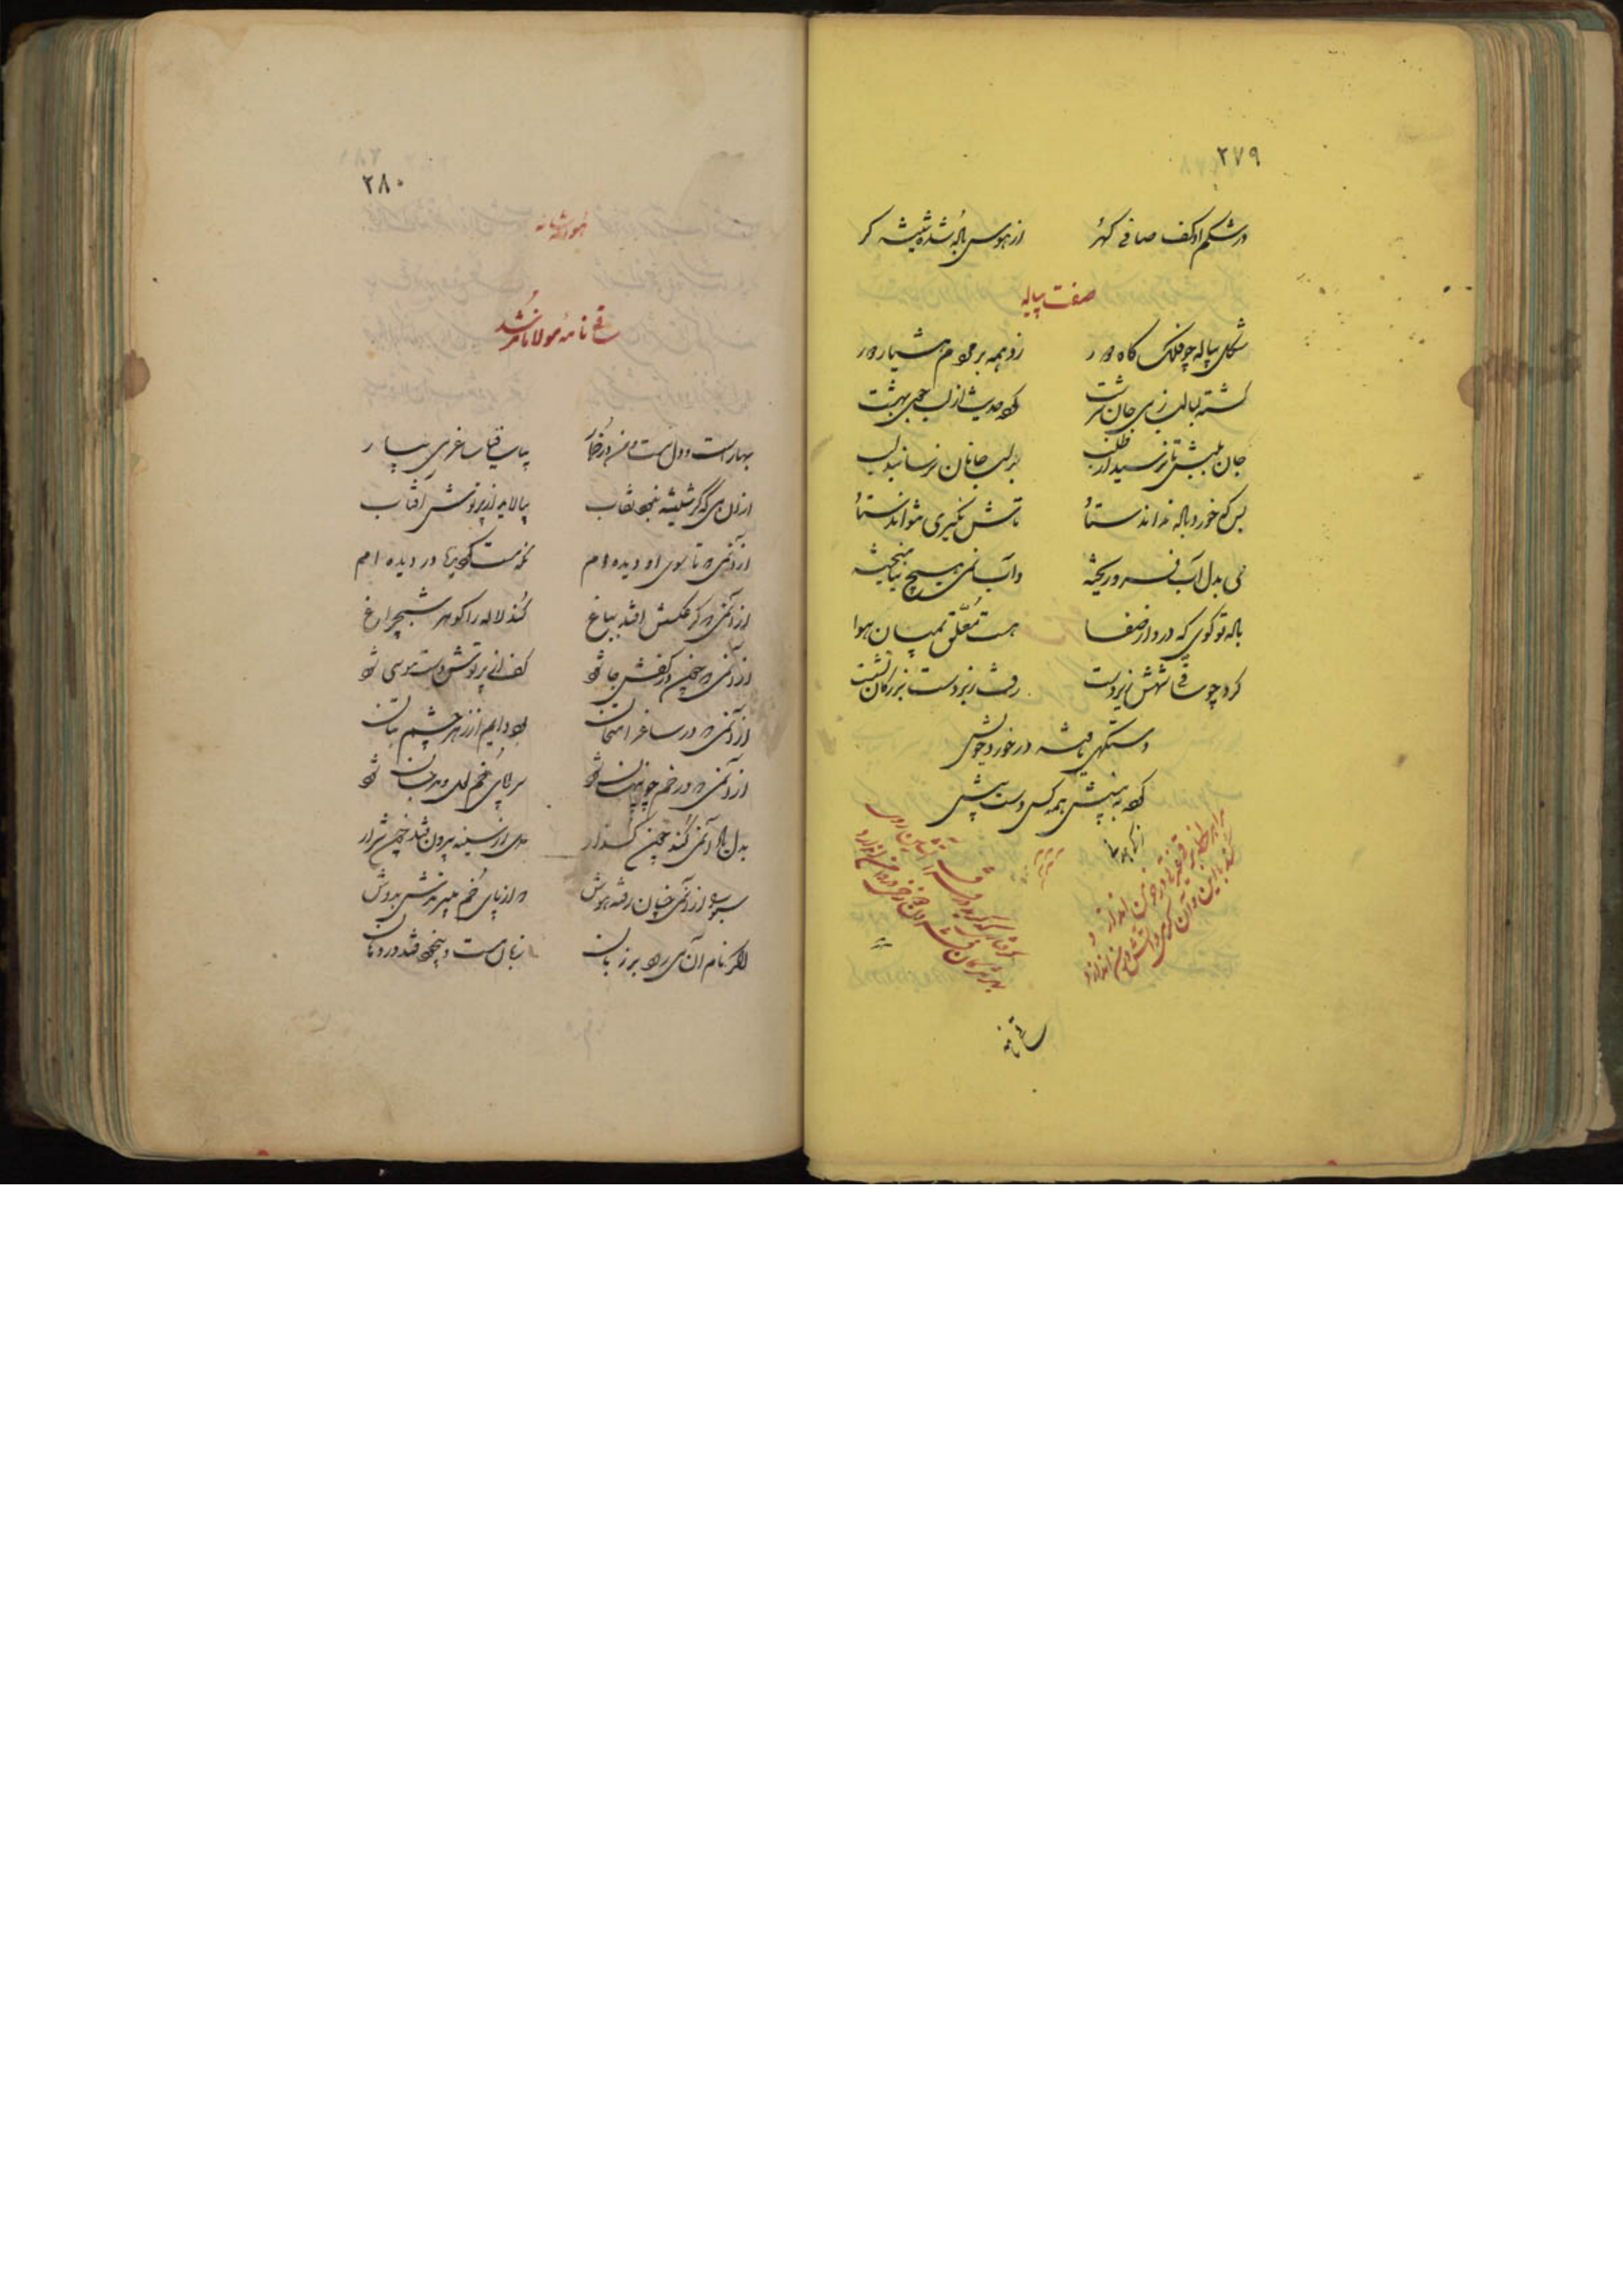 ۲۷۹
در شکم او کف صافی گهر از هوس باله شده شیشه گر
صفت پیاله
شکل پیاله چو فلک گاه دور زو همه بر مردم هشیار دور
گشته لبالب ز می جان سرشت کرده حدیث از لب جوی بهشت
جان بلبش تا نرسید از طلب بر لب جانان نرسانید لب
بس که خورد باده نداند ستاد تاش نگیری نتواند ستاد
می بدل آب فرو ریخته وآب نمی هیچ نیامیخته
باده تو گوی که در او از صفا هست معلق بمیان هوا
کرد چو ساقی شهش زیردست رفت زبردست بزرگان نشست
دستگهی یافته در خورد خویش
کرده به پیشش همه کس دست پیش
ساقی نامه
۲۸۰
هو الله شانه
ساقی نامه مولانا مرشد
بهار است و دل مست و من در خمار بیا ساقیا ساغر می بیار
از آن می که گر شیشه بیند نقاب بپالاید از پرتوش آفتاب
از آن می که تا سوی او دیده ام نگه مست گردید در دیده ام
از آن می که گر عکسش افتد بباغ کند لاله را گوهر شبچراغ
از آن می که چون در کفش جا شود کف از پرتوش دست موسی شود
از آن می که در ساغر امتحان بود دایم از زهر چشم بتان
از آن می که در خم چو پنهان شود سراپای خم لعل و مرجان شود
بدل گر از آن می کند چون گذار دمی از سینه بیرون فتد چون شرار
سبو را از آن می چنان رفته هوش که از پای خم میبرندش بدوش
اگر نام آن می رود بر زبان زبان مست و بیخود فتد در دهان